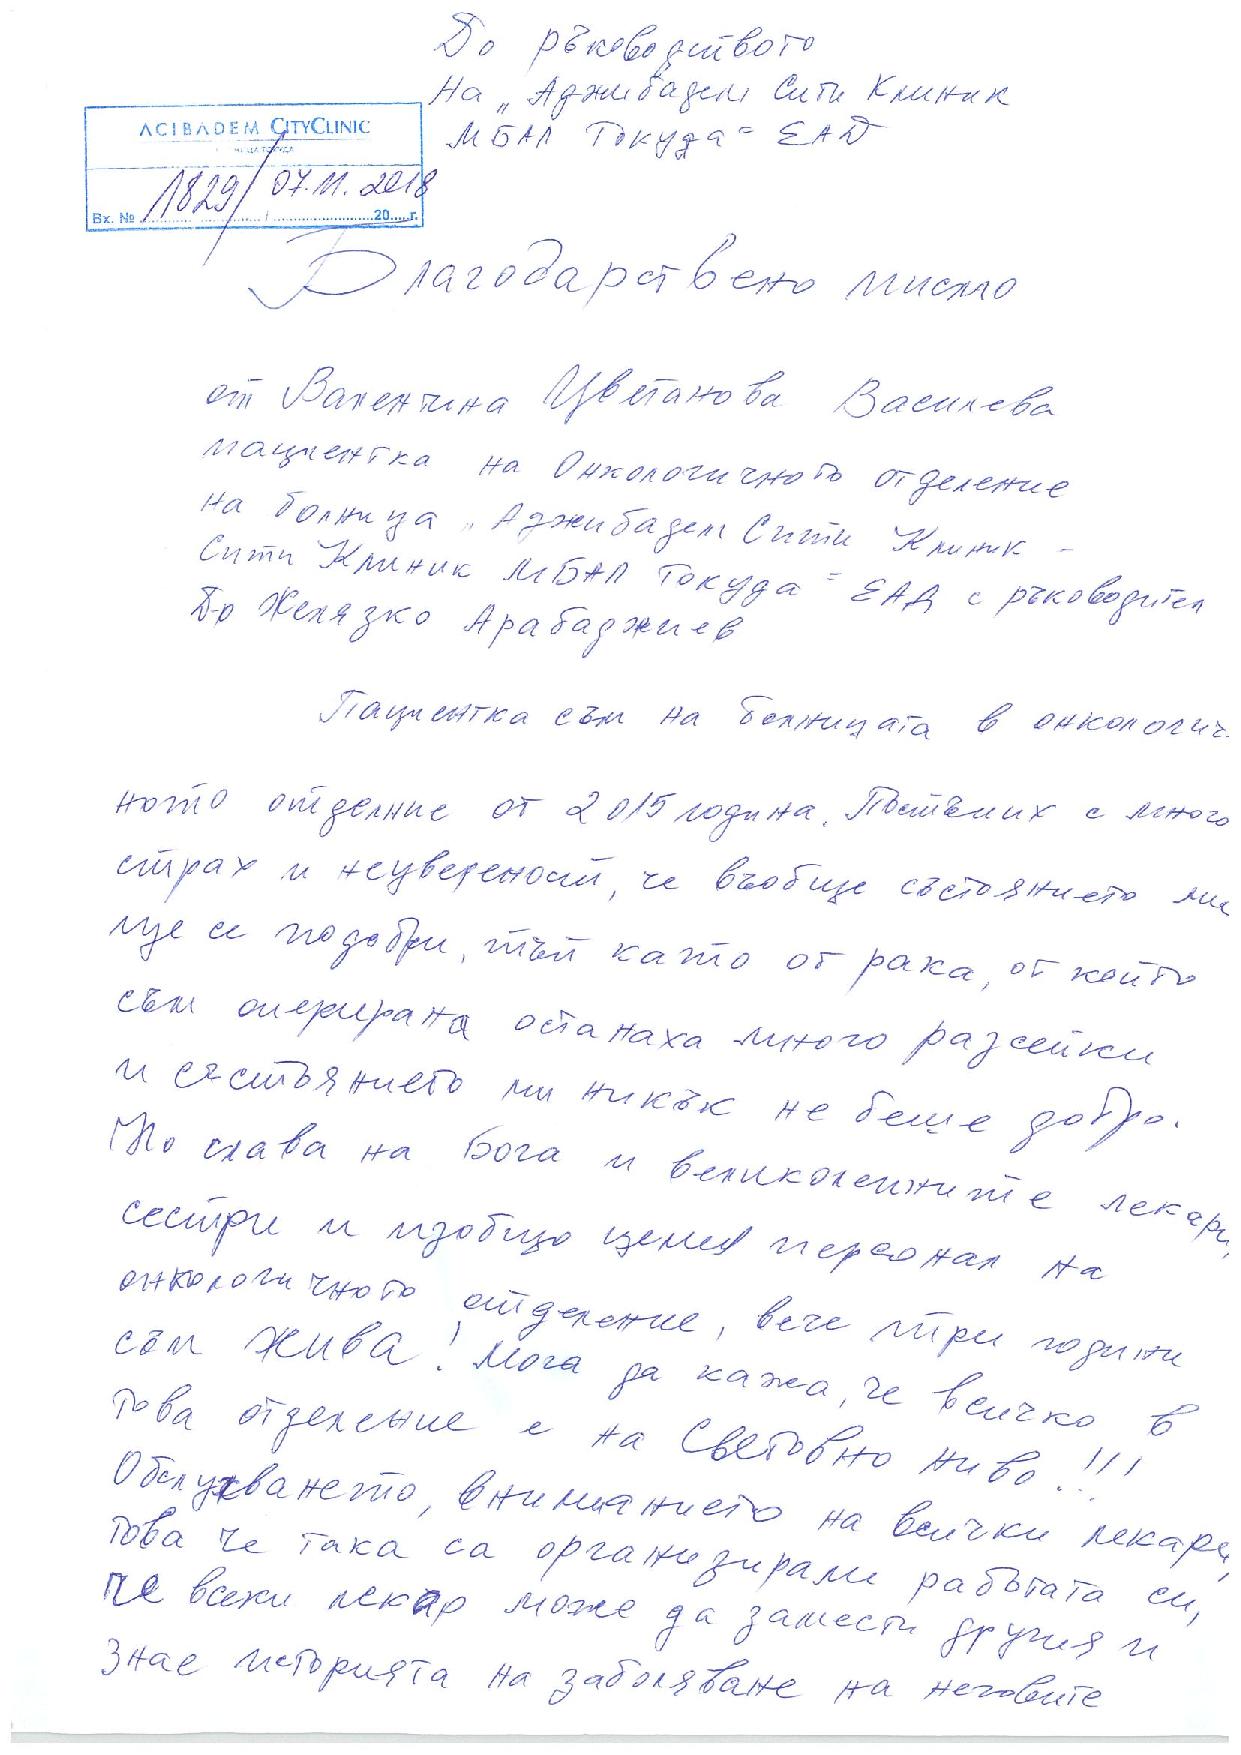 До ръководството
на „Аджибадем Сити Клиник
МБАЛ Токуда" ЕАД
ACIBADEM CITYCLINIC
Вх. № 1829 / 07.11.2018 20.....г.
Благодарствено писмо
от Валентина Цветанова Василева
пациентка на Онкологичното отделение
на болница „Аджибадем Сити Клиник -
Сити Клиник МБАЛ Токуда" ЕАД с ръководител
Д-р Желязко Арабаджиев
Пациентка съм на болницата в онкологич-
ното отделние от 2015 година. Постъпих с много
страх и неувереност, че въобще състоянието ми
ще се подобри, тъй като от рака, от който
съм оперирана останаха много разсейки
и състоянието ми никък не беше добро.
Но слава на Бога и великолепните лекари,
сестри и изобщо целия персонал на
онкологичното отделение, вече три години
съм жива! Мога да кажа, че всичко в
това отделение е на Световно ниво!!!
Обслужването, вниманието на всички лекари,
това че така са организирали работата си,
че всеки лекар може да замести другия и
знае историята на заболяване на неговите